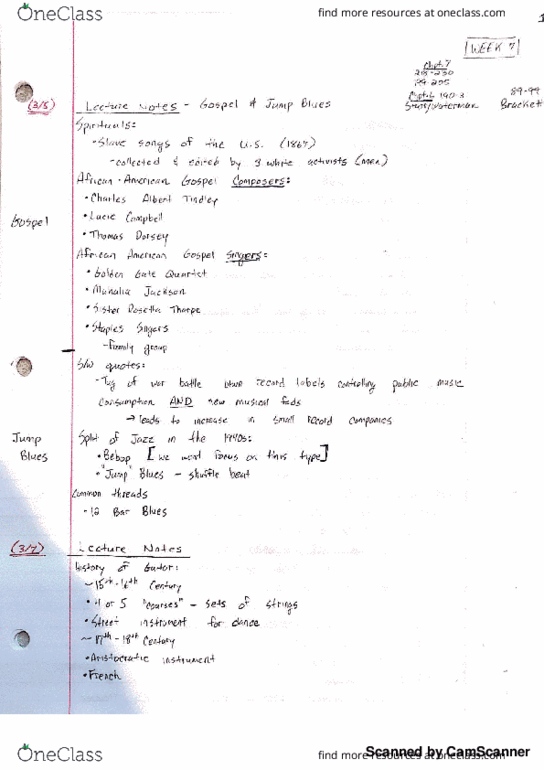 OneClass
find more resources at oneclass.com
1
WEEK 7
Chpt. 7
199-205
89-99
Brackett
(3/5)
Lecture Notes - Gospel & Jump Blues
Spirituals:
- Slave songs of the U.S. (1867)
- collected & edited by 3 white activists (men)
African-American Gospel Composers:
• Charles Albert Tindley
Gospel
• Lucie Campbell
• Thomas Dorsey
African American Gospel Singers:
• Golden Gate Quartet
• Mahalia Jackson
• Sister Rosetta Tharpe
• Staples Singers
- Family group
S/W quotes:
- Tug of war battle btwn record labels controlling public music
consumption AND new musical fads
→ leads to increase in small record companies
Jump Blues
Split of Jazz in the 1940s:
• Bebop [we wont focus on this type]
• "Jump" Blues - shuffle beat
Common threads
- 12 Bar Blues
(3/7)
Lecture Notes
History of Guitar:
~ 15th-16th Century
• 4 or 5 "courses" - sets of strings
• Street instrument for dance
~ 17th - 18th Century
• Aristocratic instrument
• French
OneClass
find more resources at oneclass.com
Scanned by CamScanner